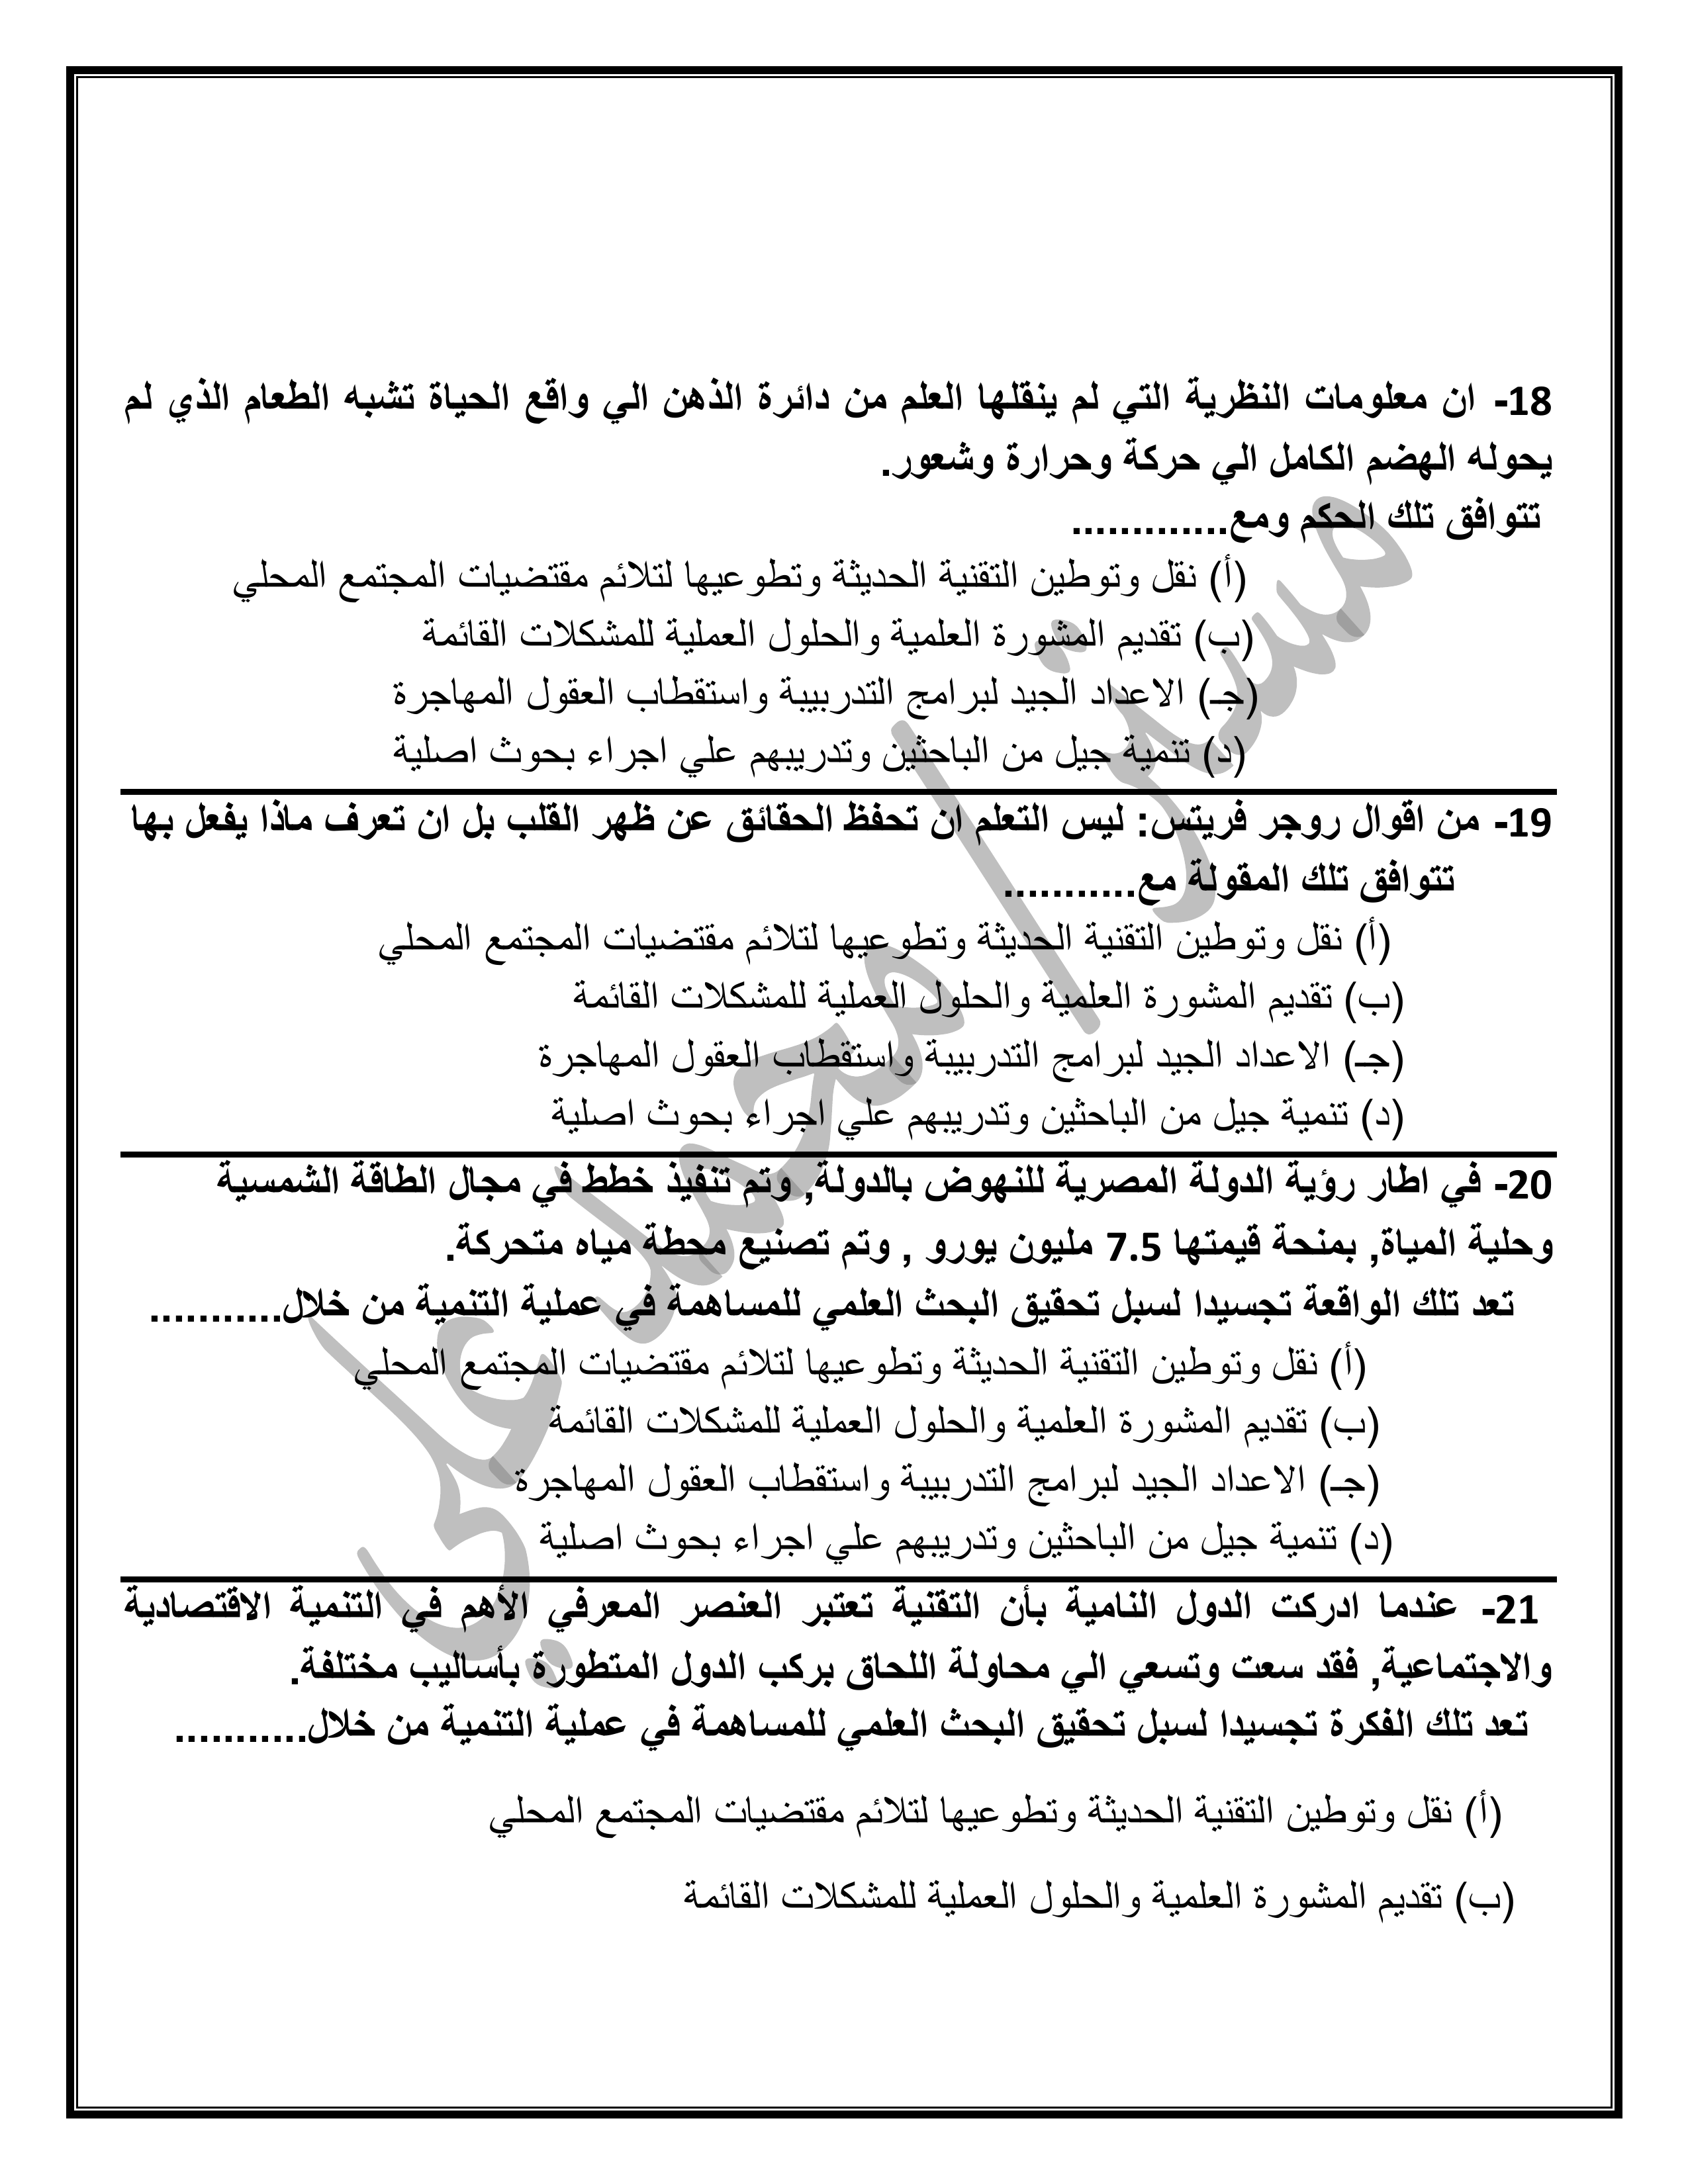 18- ان معلومات النظرية التي لم ينقلها العلم من دائرة الذهن الي واقع الحياة تشبه الطعام الذي لم
يحوله الهضم الكامل الي حركة وحرارة وشعور.
تتوافق تلك الحكم ومع.............
(أ) نقل وتوطين التقنية الحديثة وتطوعيها لتلائم مقتضيات المجتمع المحلي
(ب) تقديم المشورة العلمية والحلول العملية للمشكلات القائمة
(جـ) الاعداد الجيد لبرامج التدربيبة واستقطاب العقول المهاجرة
(د) تنمية جيل من الباحثين وتدريبهم علي اجراء بحوث اصلية
19- من اقوال روجر فريتس: ليس التعلم ان تحفظ الحقائق عن ظهر القلب بل ان تعرف ماذا يفعل بها
تتوافق تلك المقولة مع...........
(أ) نقل وتوطين التقنية الحديثة وتطوعيها لتلائم مقتضيات المجتمع المحلي
(ب) تقديم المشورة العلمية والحلول العملية للمشكلات القائمة
(جـ) الاعداد الجيد لبرامج التدربيبة واستقطاب العقول المهاجرة
(د) تنمية جيل من الباحثين وتدريبهم علي اجراء بحوث اصلية
20- في اطار رؤية الدولة المصرية للنهوض بالدولة, وتم تنفيذ خطط في مجال الطاقة الشمسية
وحلية المياة, بمنحة قيمتها 7.5 مليون يورو , وتم تصنيع محطة مياه متحركة.
تعد تلك الواقعة تجسيدا لسبل تحقيق البحث العلمي للمساهمة في عملية التنمية من خلال...........
(أ) نقل وتوطين التقنية الحديثة وتطوعيها لتلائم مقتضيات المجتمع المحلي
(ب) تقديم المشورة العلمية والحلول العملية للمشكلات القائمة
(جـ) الاعداد الجيد لبرامج التدربيبة واستقطاب العقول المهاجرة
(د) تنمية جيل من الباحثين وتدريبهم علي اجراء بحوث اصلية
21- عندما ادركت الدول النامية بأن التقنية تعتبر العنصر المعرفي الأهم في التنمية الاقتصادية
والاجتماعية, فقد سعت وتسعي الي محاولة اللحاق بركب الدول المتطورة بأساليب مختلفة.
تعد تلك الفكرة تجسيدا لسبل تحقيق البحث العلمي للمساهمة في عملية التنمية من خلال...........
(أ) نقل وتوطين التقنية الحديثة وتطوعيها لتلائم مقتضيات المجتمع المحلي
(ب) تقديم المشورة العلمية والحلول العملية للمشكلات القائمة
مستر/ محمد علي